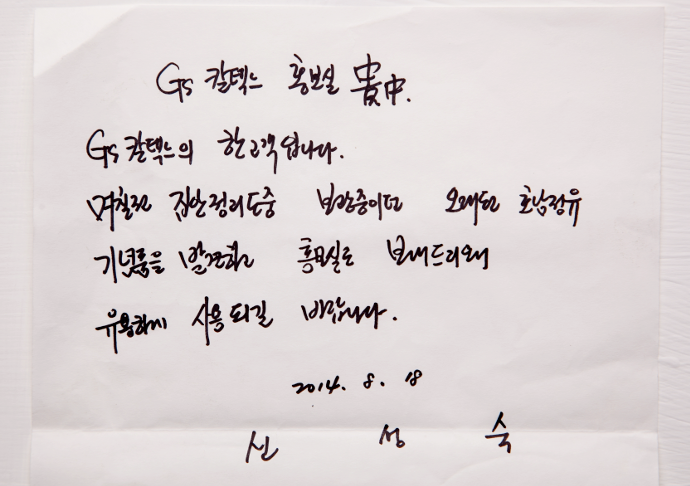 GS 칼텍스 홍보실 貴中.
GS 칼텍스의 한 고객입니다.
며칠전 집안정리도중 보관중이던 오래된 호남정유
기념품을 발견하고 홍보실로 보내드리오니
유용하게 사용되길 바랍니다.
2014. 8. 18
신 성 숙